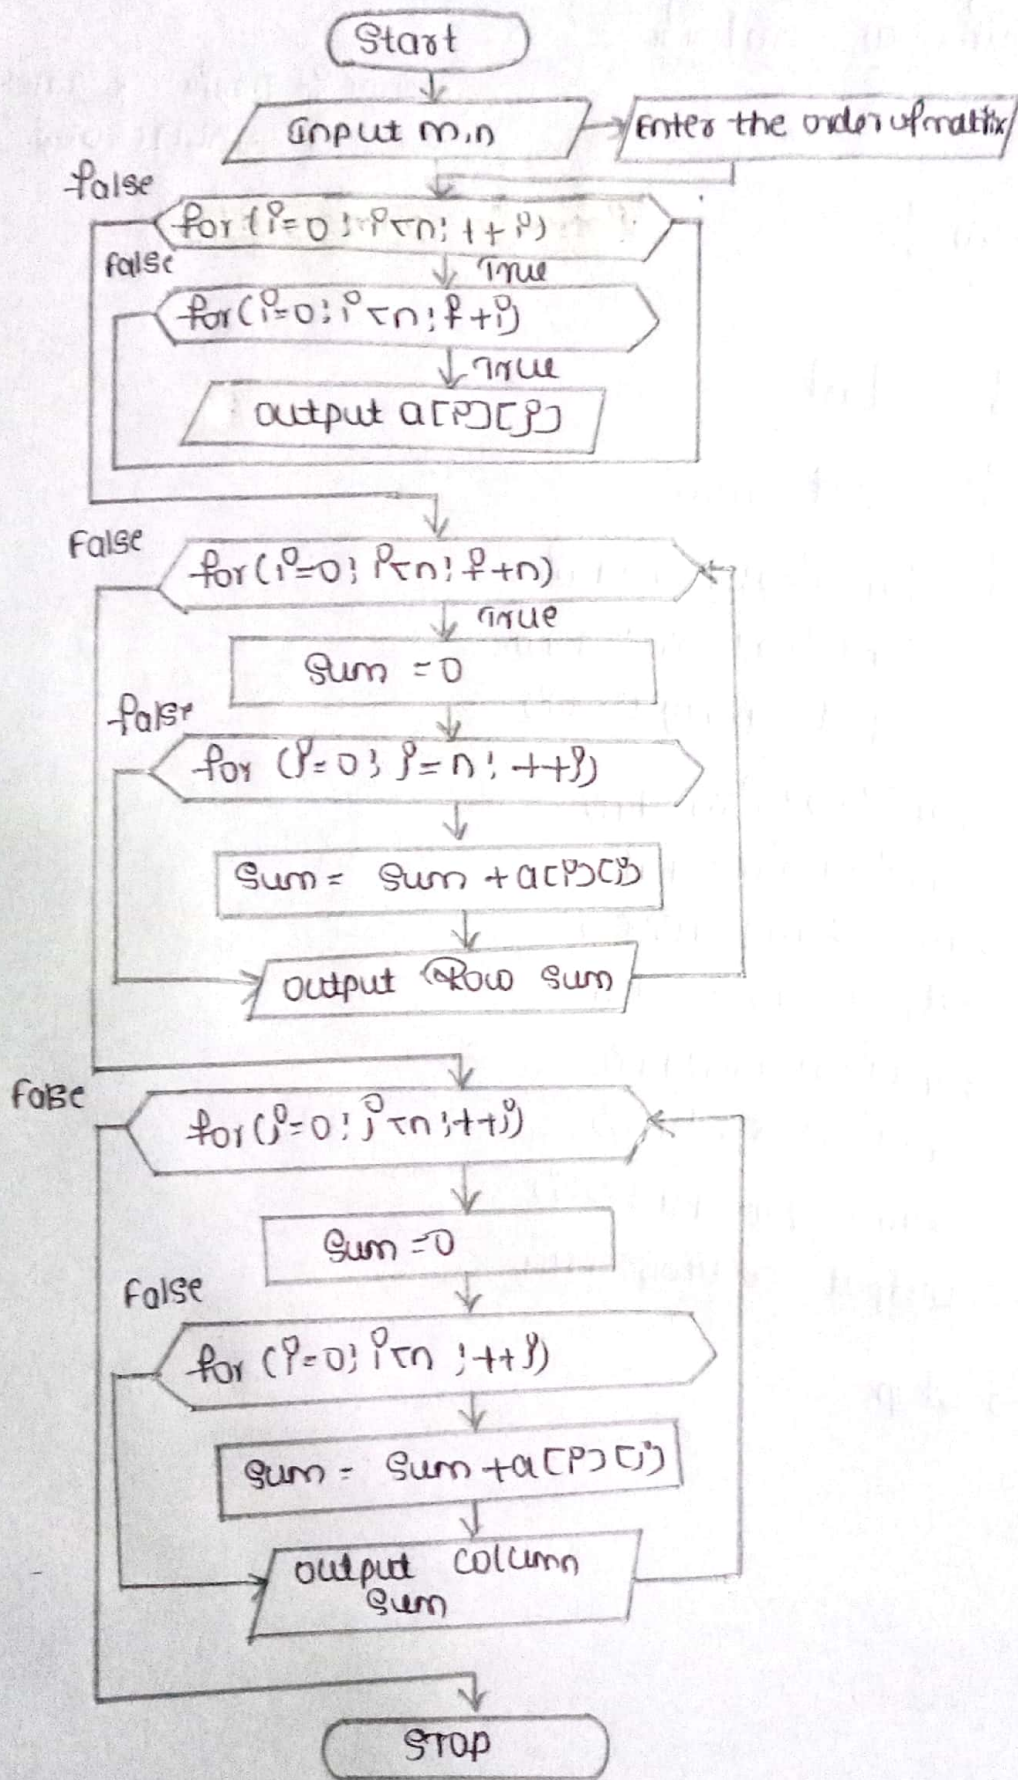 Start
input m,n
Enter the order of matrix
false
for (i=0; i<n; ++i)
false
True
for(i=0; i<n; i++i)
True
output a[i][j]
False
for(i=0; i<n; i+n)
True
Sum =0
false
for (j=0; j=n; ++j)
Sum = Sum +a[i][j]
output Row sum
False
for(j=0; j<n; ++j)
Sum =0
False
for (i=0; i<n ; ++j)
Sum = Sum +a[i][j]
output column
Sum
STOP